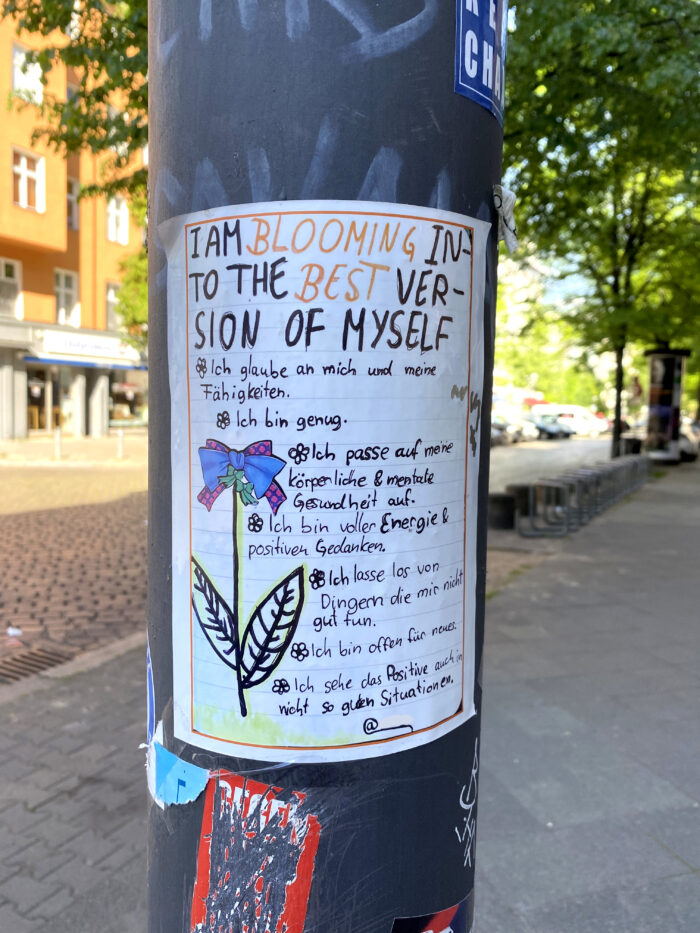 I AM BLOOMING IN-
TO THE BEST VER-
SION OF MYSELF
Ich glaube an mich und meine
Fähigkeiten.
Ich bin genug.
Ich passe auf meine
körperliche & mentale
Gesundheit auf.
Ich bin voller Energie &
positiven Gedanken.
Ich lasse los von
Dingern die mir nicht
gut tun.
Ich bin offen für neues.
Ich sehe das Positive auch in
nicht so guten Situationen.
@